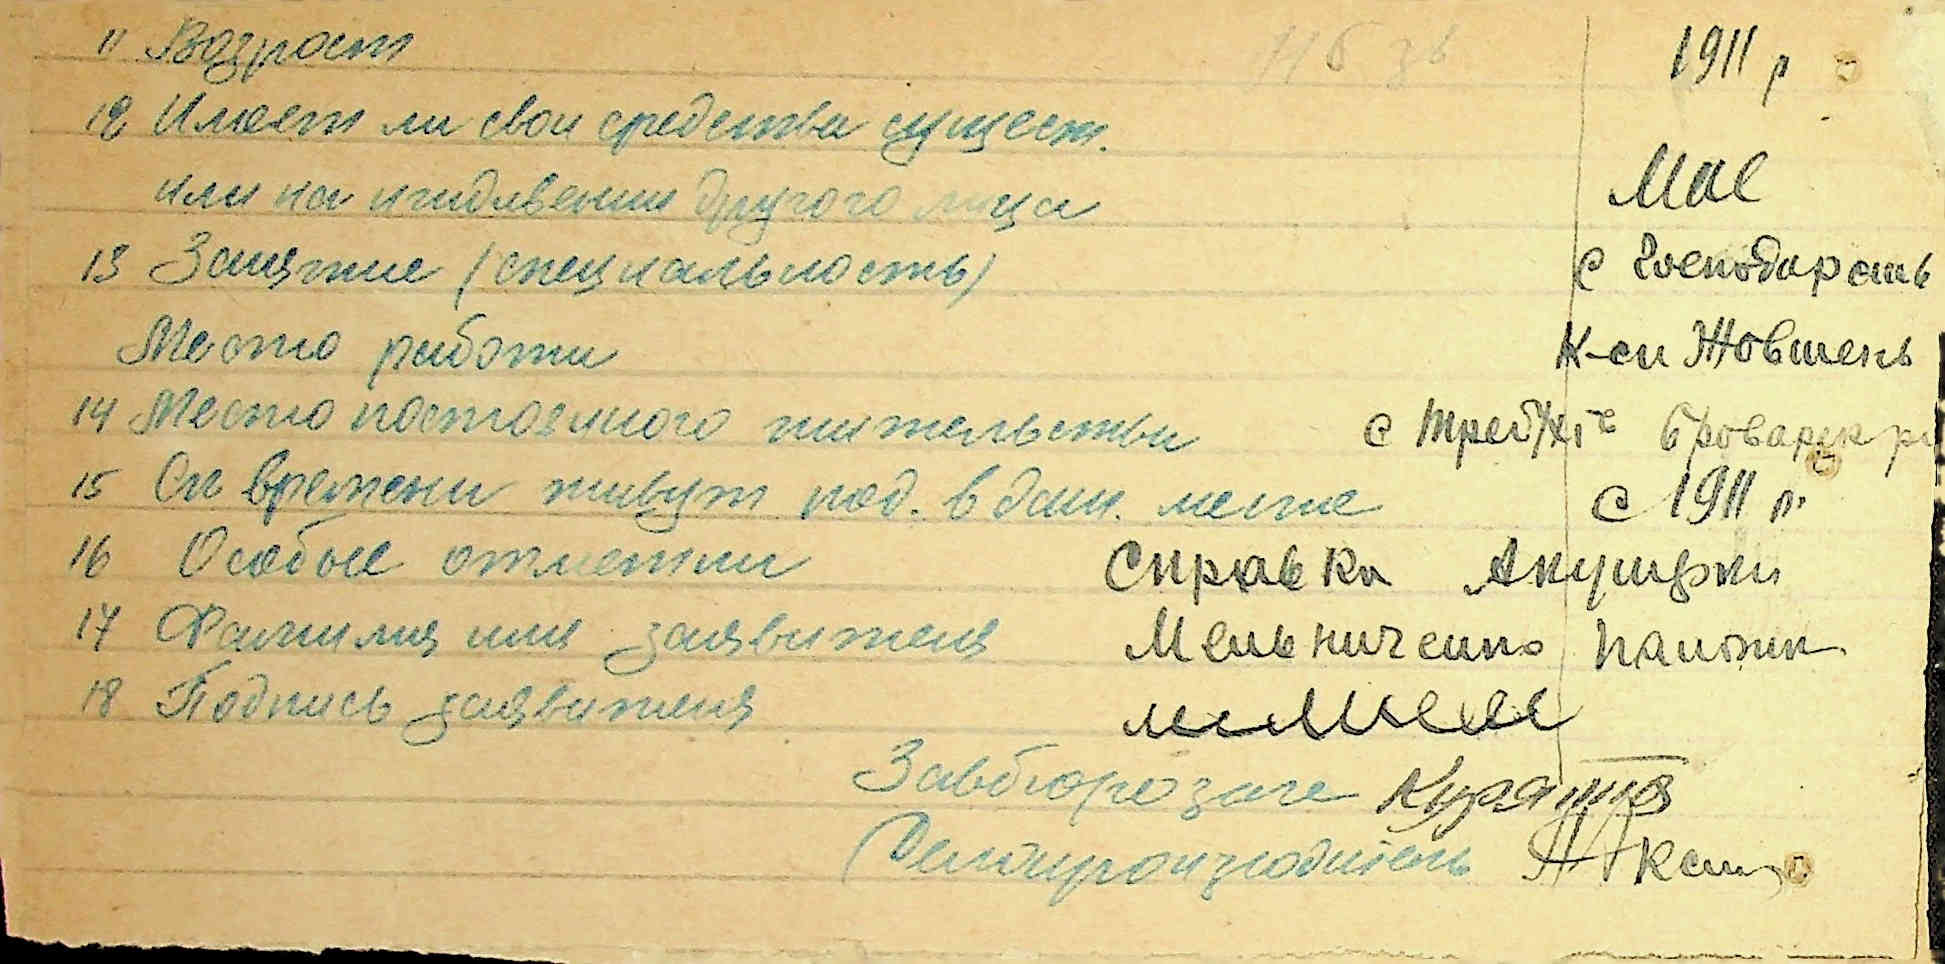 11 Возраст 1911 р
12 Имеет ли свои средства сущест.
или на иждивении другого лица Має
13 Занятие (специальность) с господарств
Место работи К-сп Жовтень
14 Место постоянного жительства с Требухів Броварск р
15 Ск времени живут под. в дан. месте с 1911 р.
16 Особые отметки Справка Акушерки
17 Фамилия имя заявителя Мельниченко
18 Подпись заявителя
Завбюрозаге
Делопроизводитель